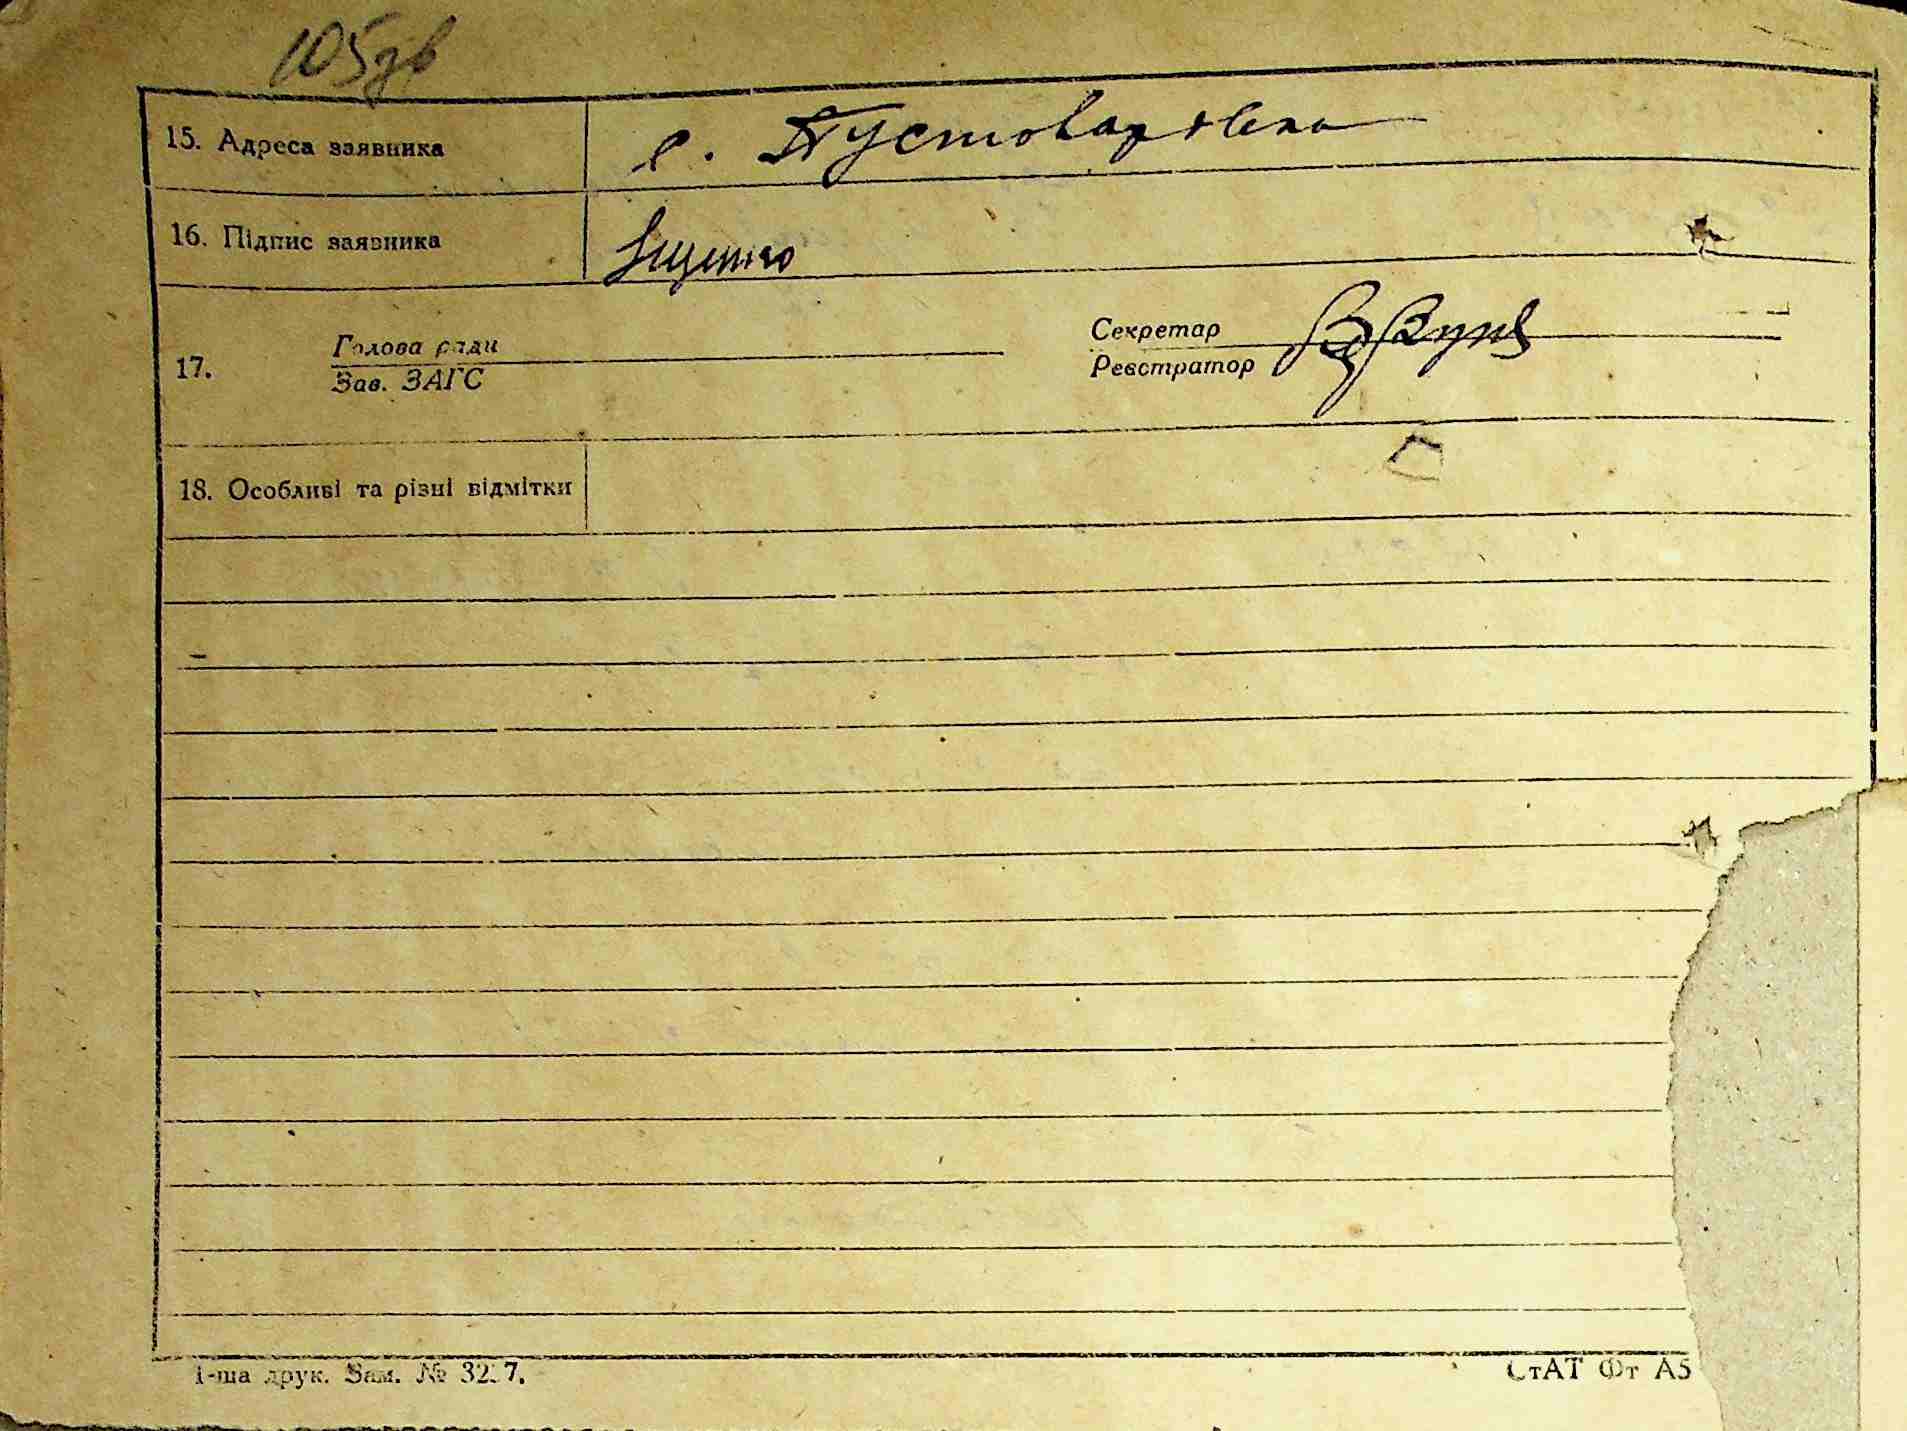 105зв
15. Адреса заявника с. Пустоваровка
16. Підпис заявника Іщенко
Голова ради Секретар
17. Зав. ЗАГС Реєстратор
18. Особливі та різні відмітки
1-ша друк. Зам. №
СтАТ Фт А5